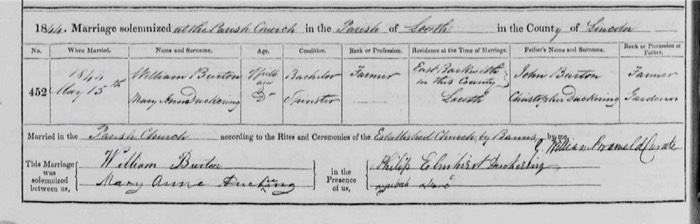 1844. Marriage solemnized at the Parish Church in the Parish of Louth in the County of Lincoln
No. When Married. Name and Surname. Age. Condition. Rank or Profession. Residence at the Time of Marriage. Father's Name and Surname. Rank or Profession of Father.
452 1844 May 15th William Burton Full Bachelor Farmer East Barkwith in this County John Burton Farmer
Mary Ann Duckering Do Spinster Louth Christopher Duckering Gardener
Married in the Parish Church according to the Rites and Ceremonies of the Established Church, by Banns, by me,
William Curate
This Marriage was solemnized between us, William Burton in the Presence of us, Philip Elmhirst Duckering
Mary Anne Duckering